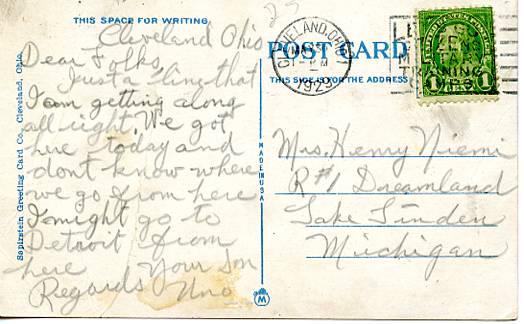 THIS SPACE FOR WRITING
Cleveland Ohio
Dear Folks,
Just a line that
I am getting along
all right. We got
here today and
dont know where
we go from here
I might go to
Detroit from
here Your Son
Regards Uno
Sapirstein Greeting Card Co., Cleveland, Ohio.
MADE IN USA
M
23
POST CARD
THIS SIDE IS FOR THE ADDRESS
CLEVELAND, OHIO
PM
1929
1
CENT
1
Mrs. Henry Niemi
R#1 Dreamland
Lake Linden
Michigan